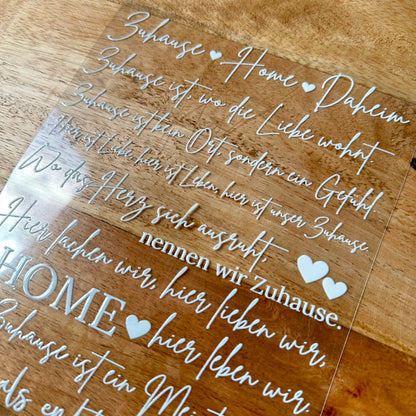 Zuhause Home Daheim
Zuhause ist, wo die Liebe wohnt
Zuhause ist kein Ort, sondern ein Gefühl
Hier ist Liebe, hier ist Leben, hier ist unser Zuhause
Wo das Herz sich ausruht,
nennen wir Zuhause.
Hier lachen wir, hier lieben wir,
HOME hier leben wir.
Zuhause ist ein
als